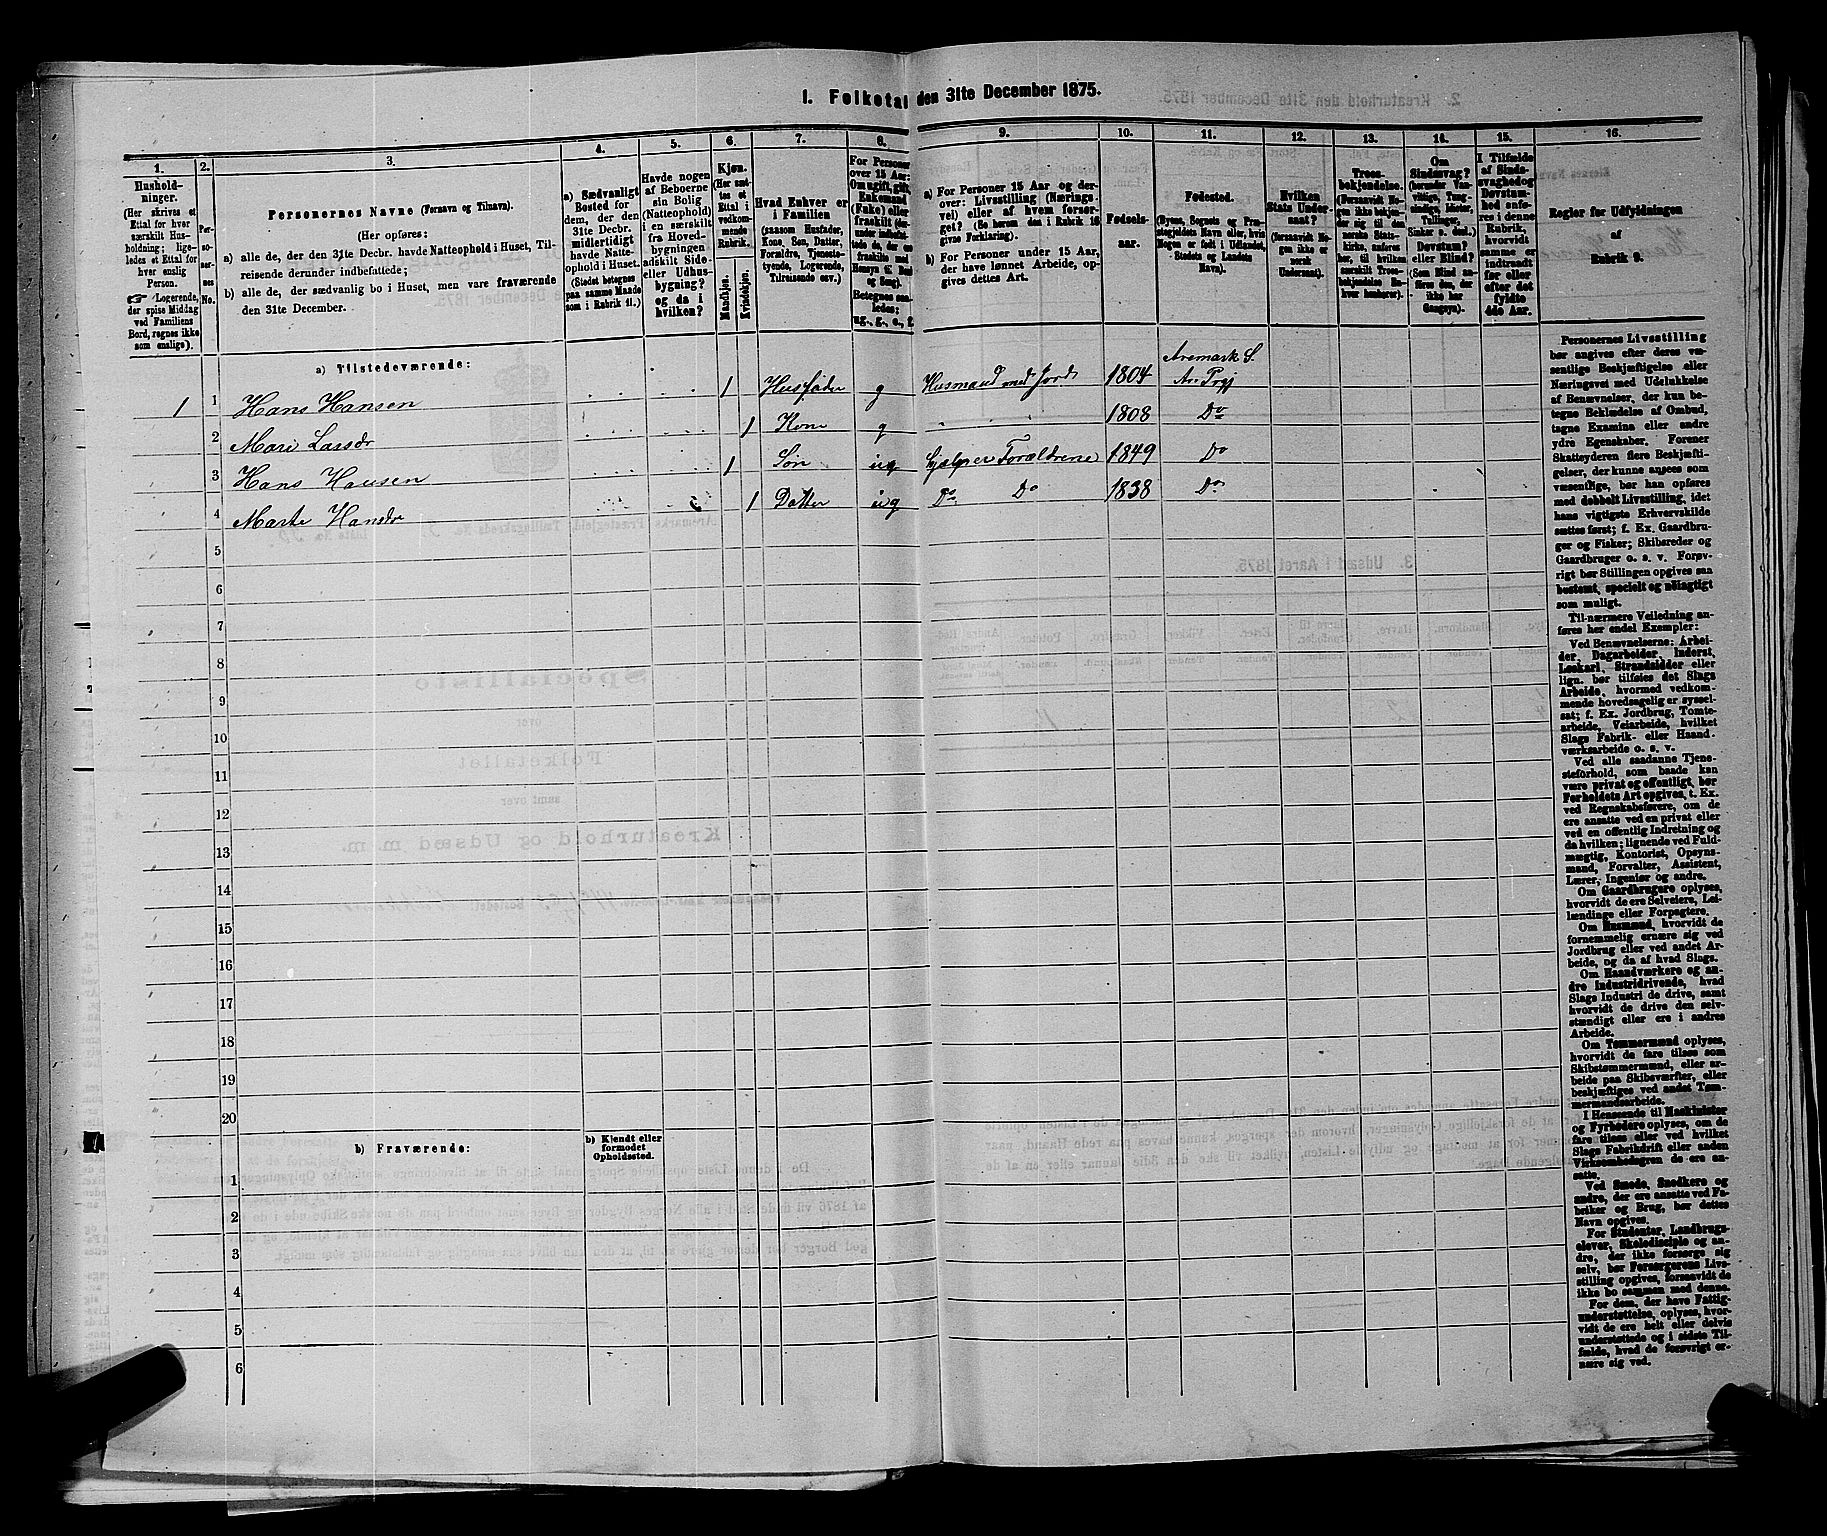 1. Folketal den 31te December 1875.
1.
2.
3.
4.
5.
6.
7.
8.
9.
10.
11.
12.
13.
14.
15.
16.
Hushold-
ninger.
(Her skrives et
Ettal for hver
særskilt Hus-
holdning; lige-
ledes et Ettal for
hver enslig
Person.
☞ Logerende,
der spise Middag
ved Familiens
Bord, regnes ikke
som enslige).
Per-
so-
ner-
nes
No.
Personernes Navne (Fornavn og Tilnavn).
(Her opføres:
a) alle de, der den 31te Decbr. havde Natteophold i Huset, Til-
reisende derunder indbefattede;
b) alle de, der sædvanlig bo i Huset, men vare fraværende
den 31te December.
a) Sædvanligt
Bosted for
dem, der den
31te Decbr.
midlertidigt
havde Natte-
ophold i Huset.
(Stedet betegnes
paa samme Maade
som i Rubrik 11.)
Havde nogen
af Beboerne
sin Bolig
(Natteophold)
i en særskilt
fra Hoved-
bygningen
adskilt Side-
eller Udhus-
bygning?
og da i
hvilken?
Kjøn.
(Her sæt-
tes et
Ettal i
vedkom-
mende
Rubrik.)
Mandkjøn.
Kvindekjøn.
Hvad Enhver er
i Familien
(saasom Husfader,
Kone, Søn, Datter,
Forældre, Tjeneste-
tyende, Logerende,
Tilreisende osv.)
For Personer
over 15 Aar:
Om ugift, gift,
Enkemand
(Enke) eller
fraskilt
Betegnes saa-
ledes:
ug., g., e., f.
a) For Personer 15 Aar og der-
over: Livsstilling (Nærings-
vei) eller af hvem forsør-
get? (Se herom den i Rubrik 16
givne Forklaring).
b) For Personer under 15 Aar,
der have lønnet Arbeide, op-
gives dettes Art.
Fødsels-
aar.
Fødested.
(Byens, Sognets og Præ-
stegjeldets Navn eller, hvis
Nogen er født i Udlandet,
Stedets og Landets
Navn).
Hvilken
Stats Under-
saat?
(forsaavidt No-
gen ikke er
norsk
Undersaat).
Troes-
bekjendelse.
(Forsaavidt No-
gen ikke bekjen-
der sig til den
norske Stats-
kirke, anføres
her, til hvilken
særskilt Troes-
bekjendelse En-
hver henhører).
Om
Sindssvag?
(herunder Van-
vittige, Tung-
sindige, Idioter,
Tullinger,
Sinker o. desl.)
Døvstum?
eller Blind?
(Som Blind an-
føres den, der
ikke har
Gangsyn).
I Tilfælde
af Sinds-
svaghed og
Døvstum-
hed anfø-
res i denne
Rubrik,
hvorvidt
samme er
indtraadt
før eller
efter det
fyldte
4de Aar.
Regler for Udfyldningen
af
Rubrik 9.
a) Tilstedeværende:
1 1 Hans Hansen 1 Husfader g Husmand med Jord 1804 Aremark S.
Ar. Prgj
2 Mari Larsdr 1 Kone g 1808 Do
3 Hans Hansen 1 Søn ug hjælper Forældrene 1849 Do
4 Marte Hansdr 1 Datter ug Do Do 1838 Do
5
6
7
8
9
10
11
12
13
14
15
16
17
18
19
20
b) Fraværende:
b) Kjendt eller
formodet
Opholdssted.
1
2
3
4
5
6
Personernes Livsstilling
bør angives efter deres væ-
sentlige Beskjæftigelse eller
Næringsvei med Udelukkelse
af Benævnelser, der kun be-
tegne Beklædelse af Ombud,
tagne Examina eller andre
ydre Egenskaber. Forener
Skatteyderen flere Beskjæfti-
gelser, der kunne ansees som
væsentlige, bør han opføres
med dobbelt Livsstilling, idet
hans vigtigste Erhvervskilde
sættes først; f. Ex. Gaardbru-
ger og Fisker; Skibsreder og
Gaardbruger o. s. v. Forøv-
rigt bør Stillingen opgives saa
bestemt, specielt og nøiagtigt
som muligt.
Til nærmere Veiledning an-
føres her endel Exempler:
Ved Benævnelserne: Arbei-
der, Dagarbeider, Inderst,
Løskarl, Strandsidder eller
lign. bør tilføies det Slags
Arbeide, hvormed vedkom-
mende hovedsagelig er syssel-
sat; f. Ex. Jordbrug, Tomte-
arbeide, Veiarbeide, hvilket
Slags Fabrik- eller Haand-
værksarbeide o. s. v.
Ved alle saadanne Tjene-
steforhold, som baade kan
være privat og offentligt, bør
Forholdets Art opgives, t. Ex.
ved Regnskabsførere, om de
ere ansatte ved en privat eller
ved en offentlig Indretning og
da hvilken; lignende ved Fuld-
mægtig, Kontorist, Opsyns-
mand, Forvalter, Assistent,
Lærer, Ingeniør og andre.
Om Gaardbrugere oplyses,
hvorvidt de ere Selveiere, Lei-
lændinge eller Forpagtere.
Om Husmænd, hvorvidt de
fornemmelig ernære sig ved
Jordbrug eller ved andet Ar-
beide, og da af hvad Slags.
Om Haandværkere og an-
dre Industridrivende, hvad
Slags Industri de drive, samt
hvorvidt de drive den selv-
stændigt eller ere i andres
Arbeide.
Om Tømmermænd oplyses,
hvorvidt de fare tilsøs som
Skibstømmermænd, eller ar-
beide paa Skibsværfter, eller
beskjæftiges ved andet Tøm-
mermandsarbeide.
I Henseende til Maskinister
og Fyrbødere oplyses, om de
fare tilsøs eller ved hvilket
Slags Fabrikdrift eller anden
Virksomhedsgren de ere an-
satte.
Ved Smede, Snedkere og
andre, der ere ansatte ved Fa-
briker og Brug, bør dettes
Navn opgives.
For Studenter, Landbrugs-
elever, Skoledisciple og an-
dre, der ikke forsørge sig
selv, bør Forsørgerens Livs-
stilling opgives, forsaavidt de
ikke bo sammen med denne.
For dem, der have Fattig-
understøttelse, oplyses, hvor-
vidt de ere helt eller delvis
understøttede og i sidste Til-
fælde, hvad de forøvrigt er-
nære sig ved.